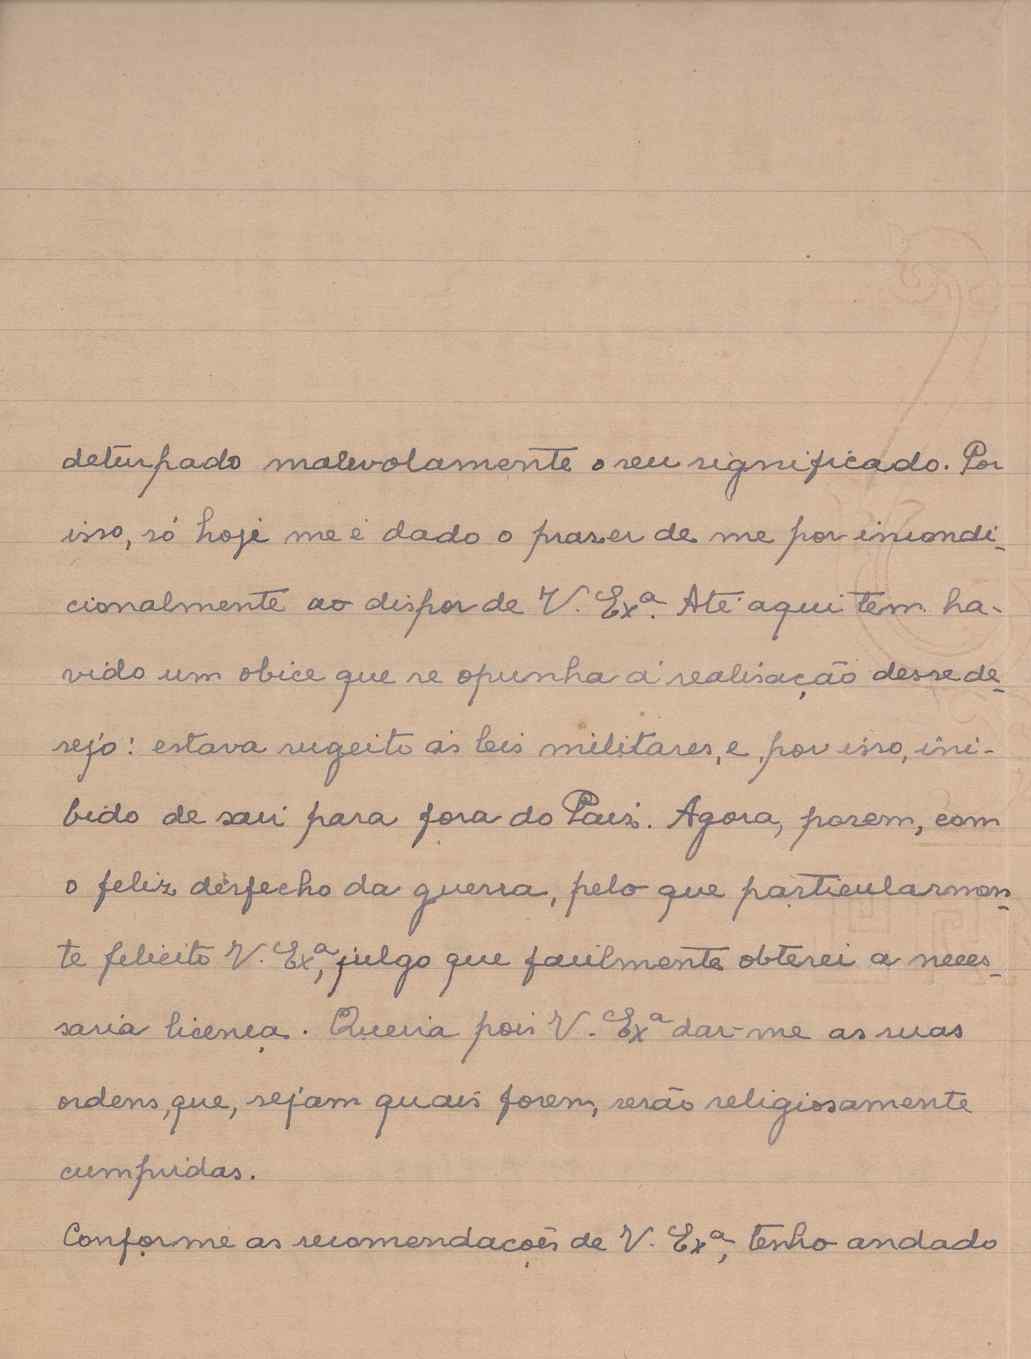 deturpado malevolamente o seu significado. Por
isso, só hoje me é dado o praser de me por incondi-
cionalmente ao dispor de V. Exª. Até aqui tem ha-
vido um obice que se opunha á realisação desse de-
sejo: estava sugeito ás leis militares, e, por isso, ini-
bido de sair para fora do Paiz. Agora, porem, com
o feliz desfecho da guerra, pelo que particularmen-
te felicito V. Exª, julgo que facilmente obterei a neces-
saria licença. Queria pois V. Exª dar-me as suas
ordens, que, sejam quais forem, serão religiosamente
cumpridas.
Conforme as recomendações de V. Exª, tenho andado